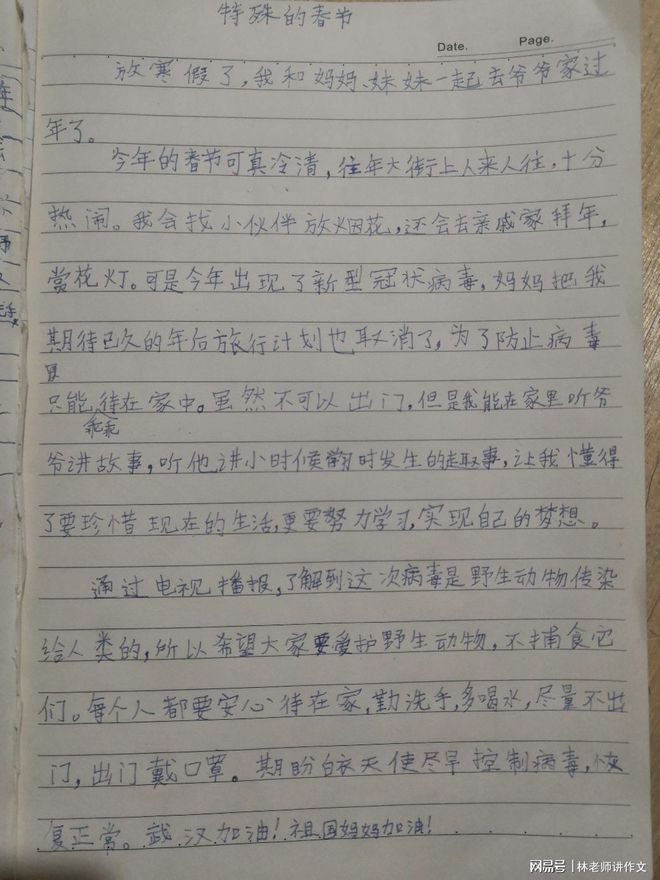 特殊的春节
Date. Page.
放寒假了，我和妈妈、妹妹一起去爷爷家过
年了。
今年的春节可真冷清，往年大街上人来人往，十分
热闹。我会找小伙伴放烟花，还会去亲戚家拜年，
赏花灯。可是今年出现了新型冠状病毒，妈妈把我
期待已久的年后旅行计划也取消了，为了防止病毒
只能乖乖待在家中。虽然不可以出门，但是我能在家里听爷
爷讲故事，听他讲小时候学习时发生的趣事，让我懂得
了要珍惜现在的生活，更要努力学习，实现自己的梦想。
通过电视播报，了解到这次病毒是野生动物传染
给人类的，所以希望大家要爱护野生动物，不捕食它
们。每个人都要安心待在家，勤洗手，多喝水，尽量不出
门，出门戴口罩。期盼白衣天使尽早控制病毒，恢
复正常。武汉加油！祖国妈妈加油！
网易号 | 林老师讲作文